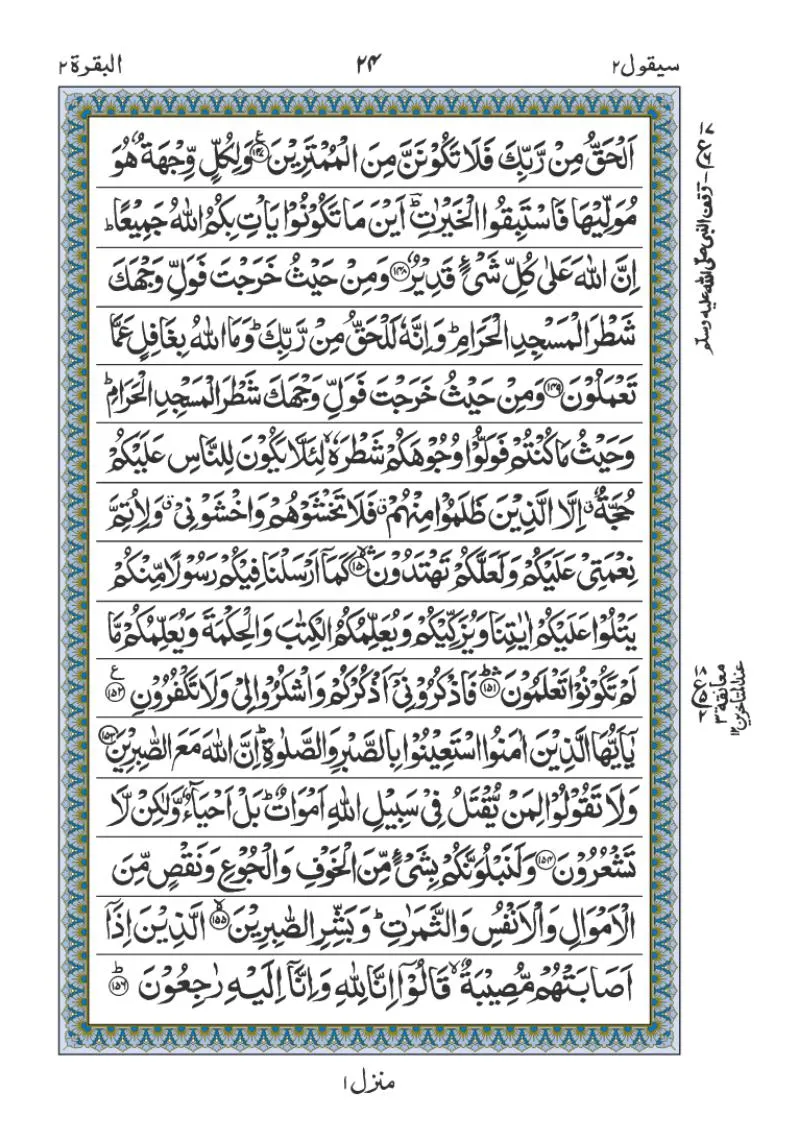 سيقول ٢
٢٤
البقرة ٢
اَلْحَقُّ مِنْ رَّبِّكَ فَلَا تَكُوْنَنَّ مِنَ الْمُمْتَرِيْنَ ﴿١٤٧﴾ وَلِكُلٍّ وِّجْهَةٌ هُوَ
مُوَلِّيْهَا فَاسْتَبِقُوا الْخَيْرٰتِ ؕ اَيْنَ مَا تَكُوْنُوْا يَاْتِ بِكُمُ اللّٰهُ جَمِيْعًا ؕ
اِنَّ اللّٰهَ عَلٰى كُلِّ شَيْءٍ قَدِيْرٌ ﴿١٤٨﴾ وَمِنْ حَيْثُ خَرَجْتَ فَوَلِّ وَجْهَكَ
شَطْرَ الْمَسْجِدِ الْحَرَامِ ؕ وَاِنَّهٗ لَلْحَقُّ مِنْ رَّبِّكَ ؕ وَمَا اللّٰهُ بِغَافِلٍ عَمَّا
تَعْمَلُوْنَ ﴿١٤٩﴾ وَمِنْ حَيْثُ خَرَجْتَ فَوَلِّ وَجْهَكَ شَطْرَ الْمَسْجِدِ الْحَرَامِ ؕ
وَحَيْثُ مَا كُنْتُمْ فَوَلُّوْا وُجُوْهَكُمْ شَطْرَهٗ ۙ لِئَلَّا يَكُوْنَ لِلنَّاسِ عَلَيْكُمْ
حُجَّةٌ ۗ اِلَّا الَّذِيْنَ ظَلَمُوْا مِنْهُمْ ۗ فَلَا تَخْشَوْهُمْ وَاخْشَوْنِيْ ۗ وَلِاُتِمَّ
نِعْمَتِيْ عَلَيْكُمْ وَلَعَلَّكُمْ تَهْتَدُوْنَ ﴿١٥٠﴾ كَمَاۤ اَرْسَلْنَا فِيْكُمْ رَسُوْلًا مِّنْكُمْ
يَتْلُوْا عَلَيْكُمْ اٰيٰتِنَا وَيُزَكِّيْكُمْ وَيُعَلِّمُكُمُ الْكِتٰبَ وَالْحِكْمَةَ وَيُعَلِّمُكُمْ مَّا
لَمْ تَكُوْنُوْا تَعْلَمُوْنَ ﴿١٥١﴾ فَاذْكُرُوْنِيْۤ اَذْكُرْكُمْ وَاشْكُرُوْا لِيْ وَلَا تَكْفُرُوْنِ ﴿١٥٢﴾
يٰۤاَيُّهَا الَّذِيْنَ اٰمَنُوا اسْتَعِيْنُوْا بِالصَّبْرِ وَالصَّلٰوةِ ؕ اِنَّ اللّٰهَ مَعَ الصّٰبِرِيْنَ ﴿١٥٣﴾
وَلَا تَقُوْلُوْا لِمَنْ يُّقْتَلُ فِيْ سَبِيْلِ اللّٰهِ اَمْوَاتٌ ؕ بَلْ اَحْيَآءٌ وَّلٰكِنْ لَّا
تَشْعُرُوْنَ ﴿١٥٤﴾ وَلَنَبْلُوَنَّكُمْ بِشَيْءٍ مِّنَ الْخَوْفِ وَالْجُوْعِ وَنَقْصٍ مِّنَ
الْاَمْوَالِ وَالْاَنْفُسِ وَالثَّمَرٰتِ ؕ وَبَشِّرِ الصّٰبِرِيْنَ ﴿١٥٥﴾ الَّذِيْنَ اِذَاۤ
اَصَابَتْهُمْ مُّصِيْبَةٌ ۙ قَالُوْۤا اِنَّا لِلّٰهِ وَاِنَّاۤ اِلَيْهِ رٰجِعُوْنَ ﴿١٥٦﴾
وقف النبى صلى الله عليه وسلم
معانقة ٣
عند المتاخرين ١٢
منزل ١